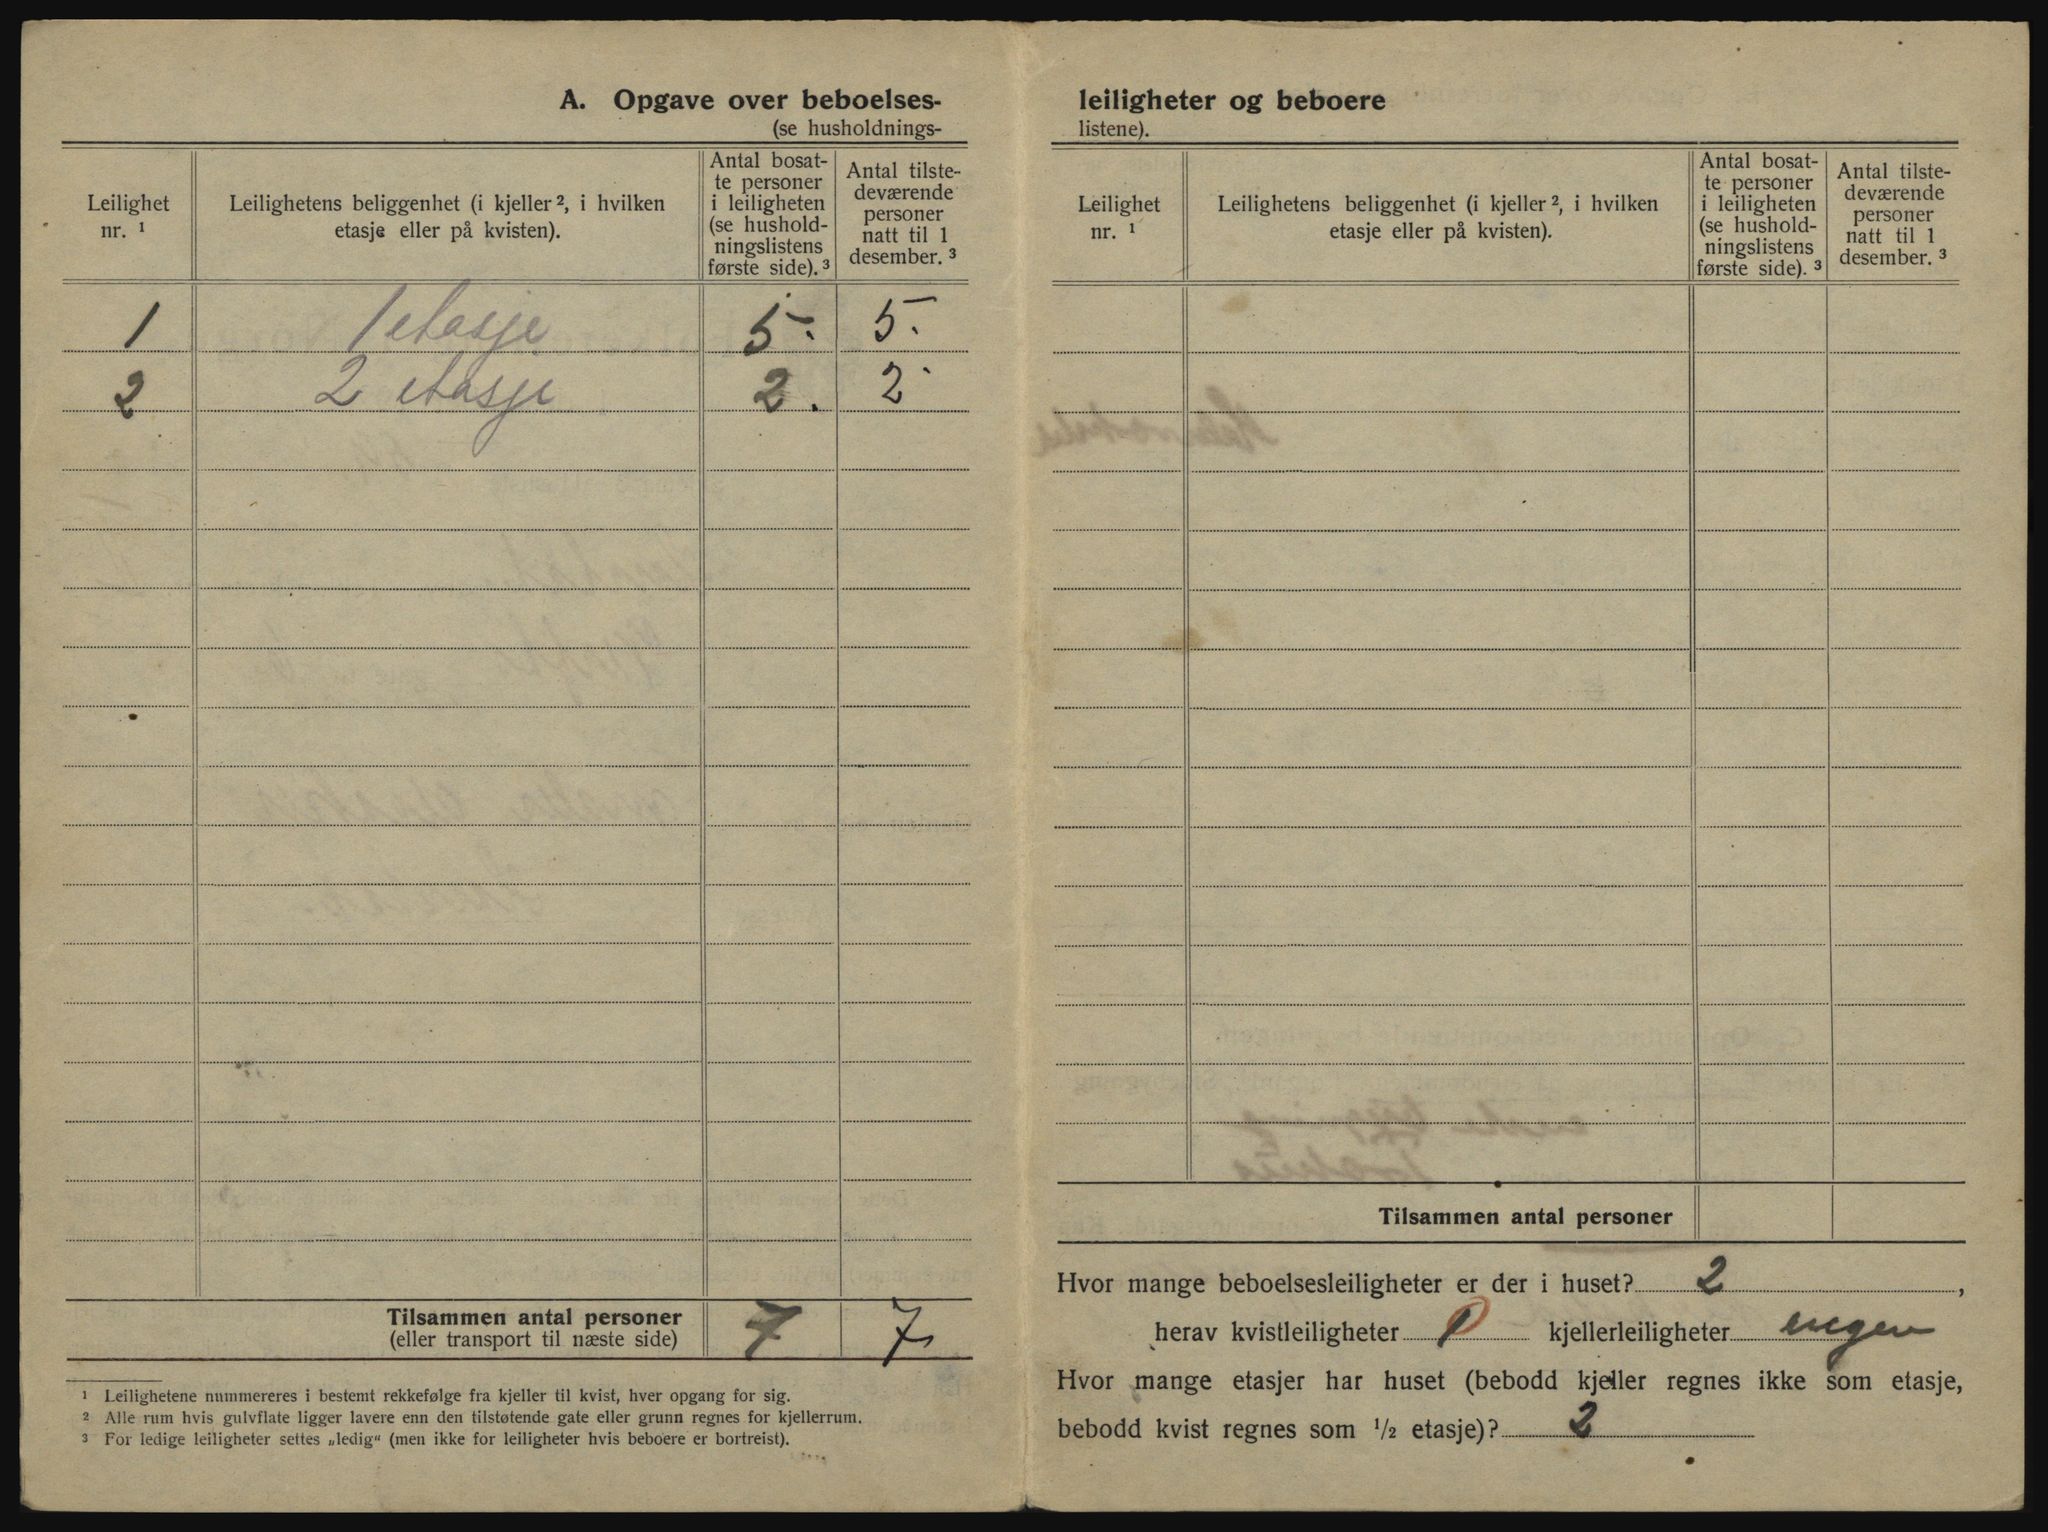 A. Opgave over beboelses-
(se husholdnings-
Leilighet nr. ¹
Leilighetens beliggenhet (i kjeller ², i hvilken etasje eller på kvisten).
Antal bosat-
te personer
i leiligheten
(se hushold-
ningslistens
første side). ³
Antal tilste-
deværende
personer
natt til 1
desember. ³
1 1 etasje 5. 5.
2 2 etasje 2. 2
Tilsammen antal personer 7 7
(eller transport til næste side)
¹ Leilighetene nummereres i bestemt rekkefølge fra kjeller til kvist, hver opgang for sig.
² Alle rum hvis gulvflate ligger lavere enn den tilstøtende gate eller grunn regnes for kjellerrum.
³ For ledige leiligheter settes „ledig“ (men ikke for leiligheter hvis beboere er bortreist).
leiligheter og beboere
listene).
Leilighet nr. ¹
Leilighetens beliggenhet (i kjeller ², i hvilken etasje eller på kvisten).
Antal bosat-
te personer
i leiligheten
(se hushold-
ningslistens
første side). ³
Antal tilste-
deværende
personer
natt til 1
desember. ³
Tilsammen antal personer
Hvor mange beboelsesleiligheter er der i huset? 2 ,
herav kvistleiligheter kjellerleiligheter ingen
Hvor mange etasjer har huset (bebodd kjeller regnes ikke som etasje,
bebodd kvist regnes som ½ etasje)? 2